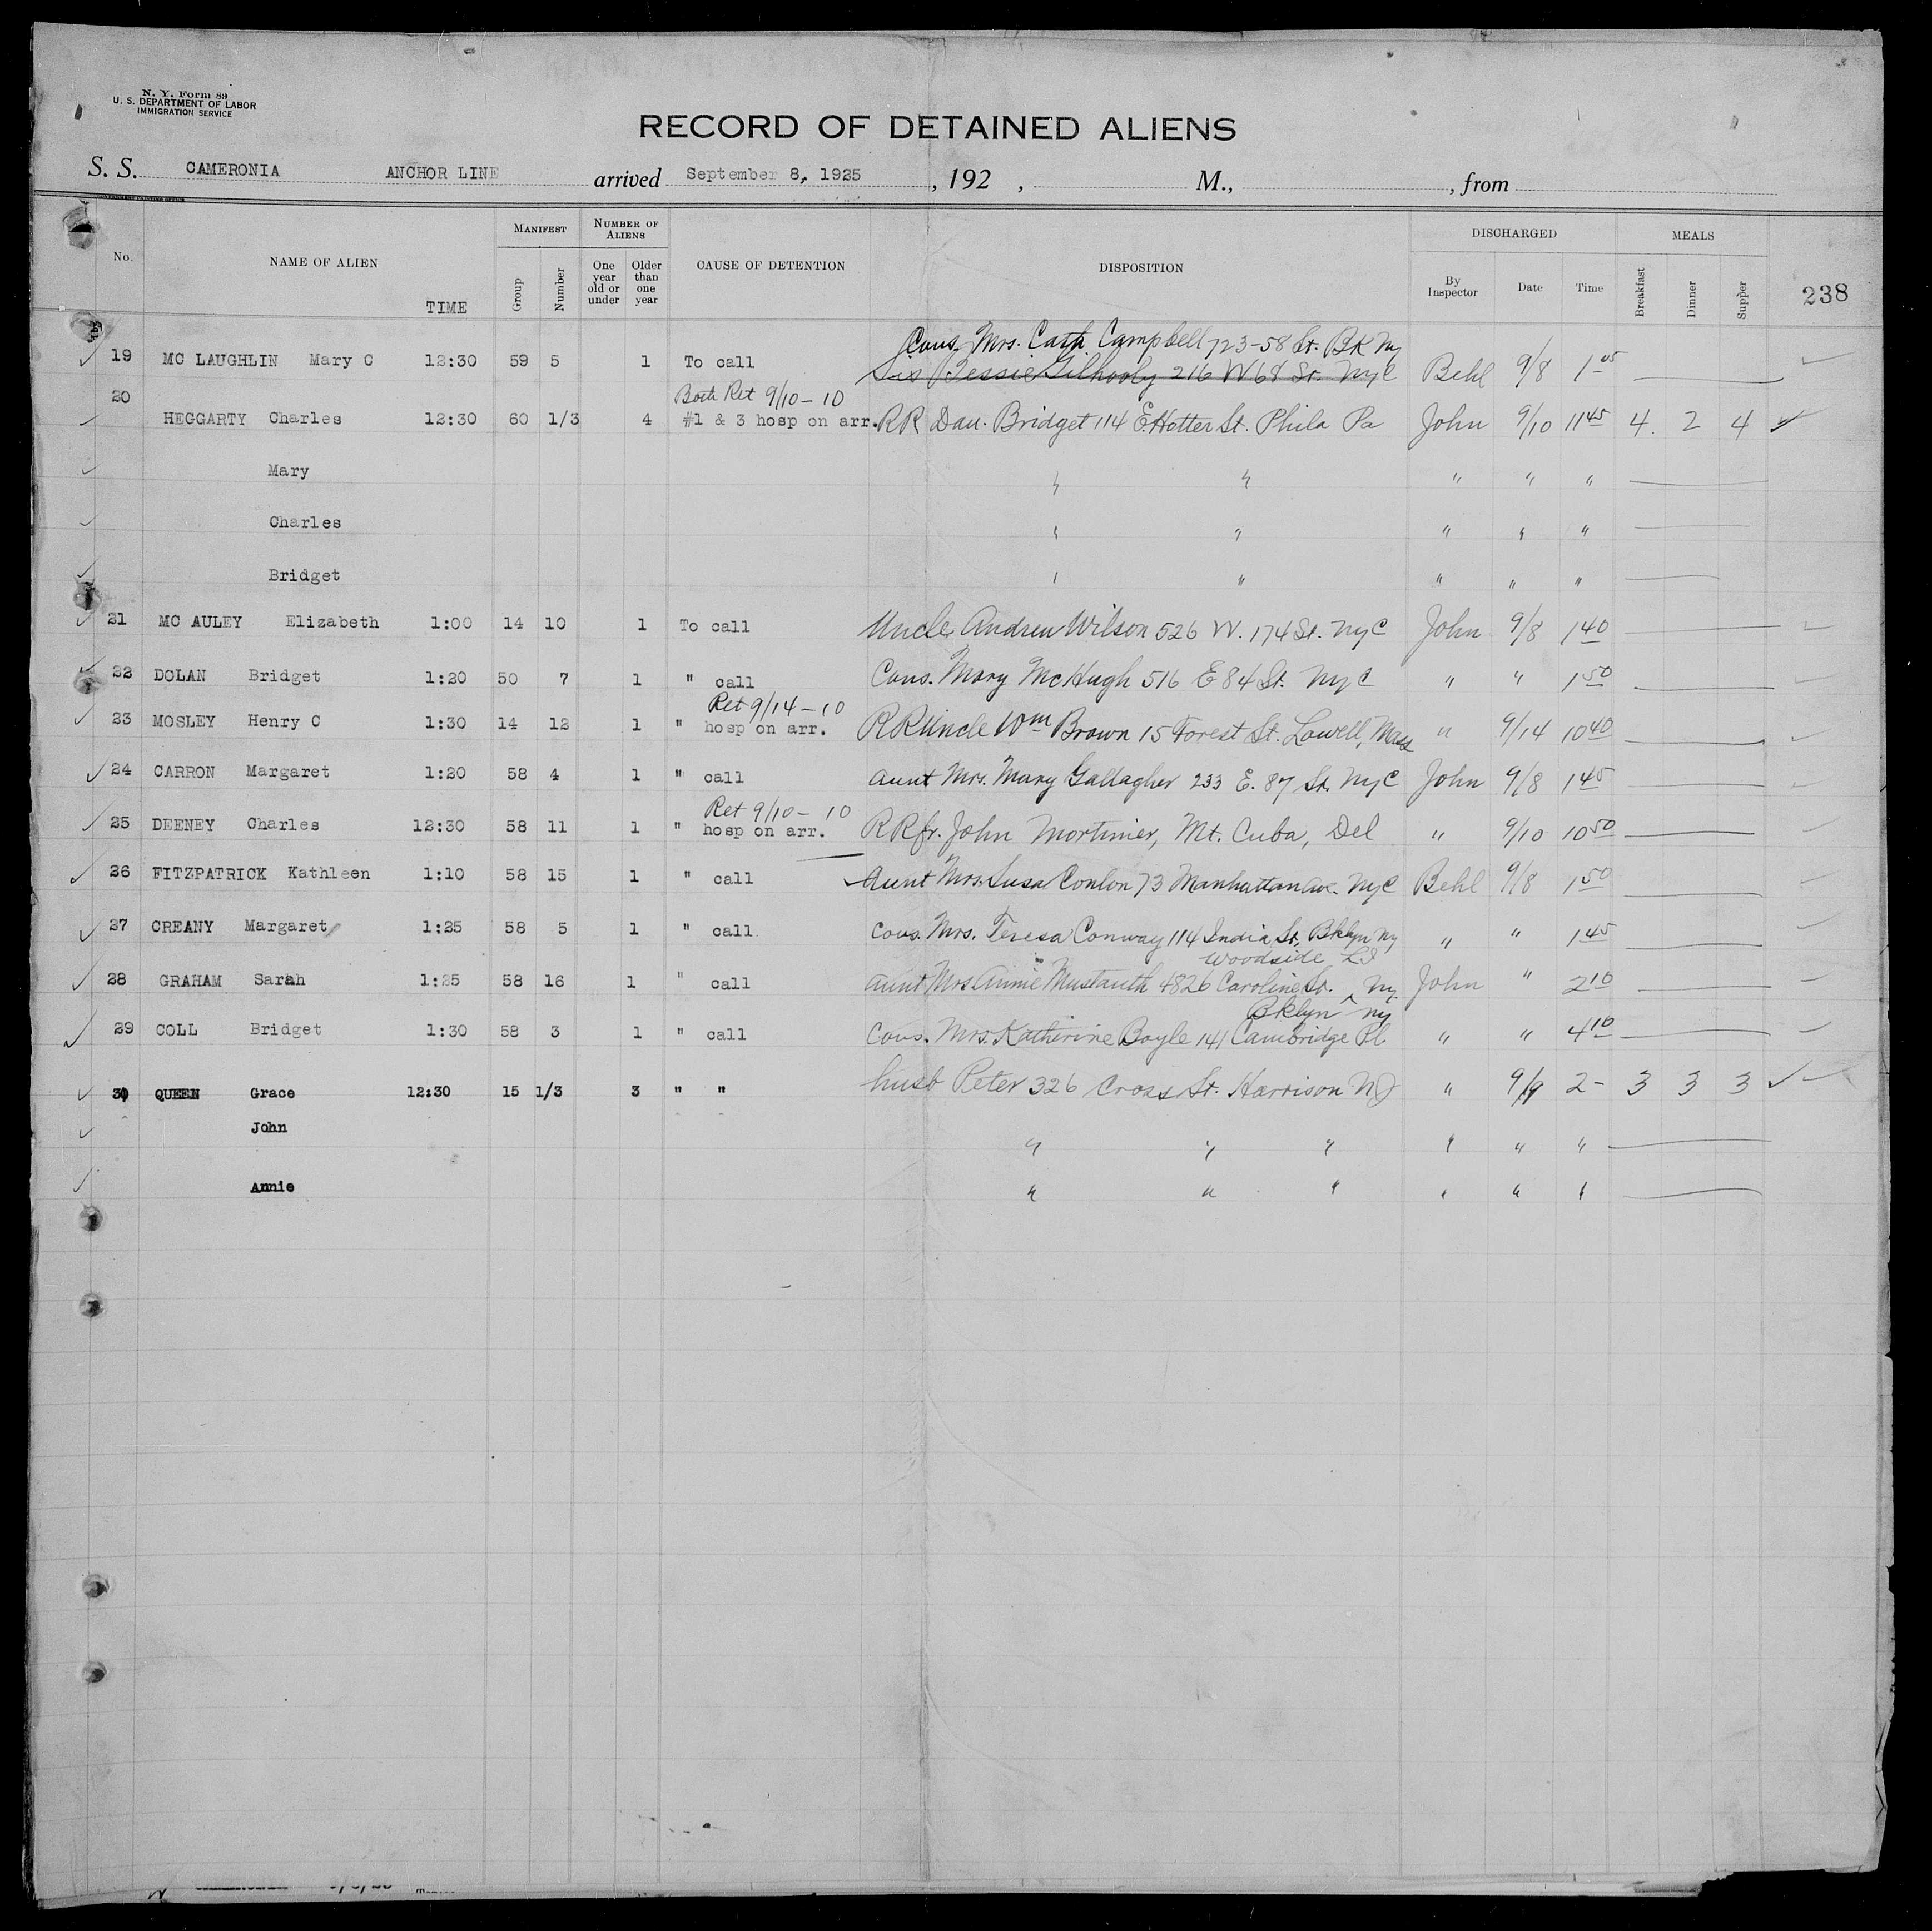 N. Y. Form 89
U. S. DEPARTMENT OF LABOR
IMMIGRATION SERVICE
RECORD OF DETAINED ALIENS
S. S. CAMERONIA ANCHOR LINE arrived September 8, 1925 , 192 , M., , from
No. NAME OF ALIEN TIME MANIFEST Group Number NUMBER OF ALIENS One year old or under Older than one year CAUSE OF DETENTION DISPOSITION DISCHARGED By Inspector Date Time MEALS Breakfast Dinner Supper 238
Cous. Mrs. Cath. Campbell 723-58 St. BK Ny
19 MC LAUGHLIN Mary C 12:30 59 5 1 To call Sis Bessie Gilhooly 216 W 68 St. NyC Behl 9/8 1 05
20 Both Ret 9/10-10
HEGGARTY Charles 12:30 60 1/3 4 #1 & 3 hosp on arr. RR Dau. Bridget 114 E. Hotter St. Phila Pa John 9/10 11 45 4. 2 4
Mary " " " " "
Charles " " " " "
Bridget " " " " "
21 MC AULEY Elizabeth 1:00 14 10 1 To call Uncle Andrew Wilson 526 W. 174 St. NyC John 9/8 1 40
22 DOLAN Bridget 1:20 50 7 1 " call Cous. Mary McHugh 516 E 84 St. NyC " " 1 50
Ret 9/14-10
23 MOSLEY Henry C 1:30 14 12 1 " hosp on arr. RR Uncle Wm Brown 15 Forest St. Lowell, Mass " 9/14 10 40
24 CARRON Margaret 1:20 58 4 1 " call Aunt Mrs. Mary Gallagher 233 E. 87 St. NyC John 9/8 1 45
Ret 9/10-10
25 DEENEY Charles 12:30 58 11 1 " hosp on arr. RR fr. John Mortimer, Mt. Cuba, Del " 9/10 10 50
26 FITZPATRICK Kathleen 1:10 58 15 1 " call Aunt Mrs. Susa Conlon 73 Manhattan Ave. NyC Behl 9/8 1 50
27 CREANY Margaret 1:25 58 5 1 " call Cous. Mrs. Teresa Conway 114 India St, Bklyn Ny " " 1 45
Woodside LI
28 GRAHAM Sarah 1:25 58 16 1 " call Aunt Mrs. Annie 4826 Caroline St. Ny. John " 2 10
Bklyn Ny
29 COLL Bridget 1:30 58 3 1 " call Cous. Mrs. Katherine Boyle 141 Cambridge Pl. " " 4 10
30 QUEEN Grace 12:30 15 1/3 3 " " husb Peter 326 Cross St. Harrison NJ " 9/9 2- 3 3 3
John " " " " " "
Annie " " " " " "